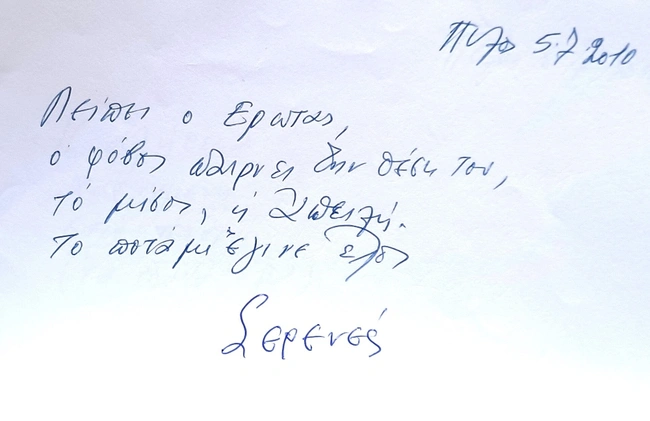 5.7.2010
Λείπει ο Έρωτας,
ο φόβος παίρνει την θέση του,
τό μίσος, ή Απειλή.
Το ποτάμι έγινε έλος
Σερενές